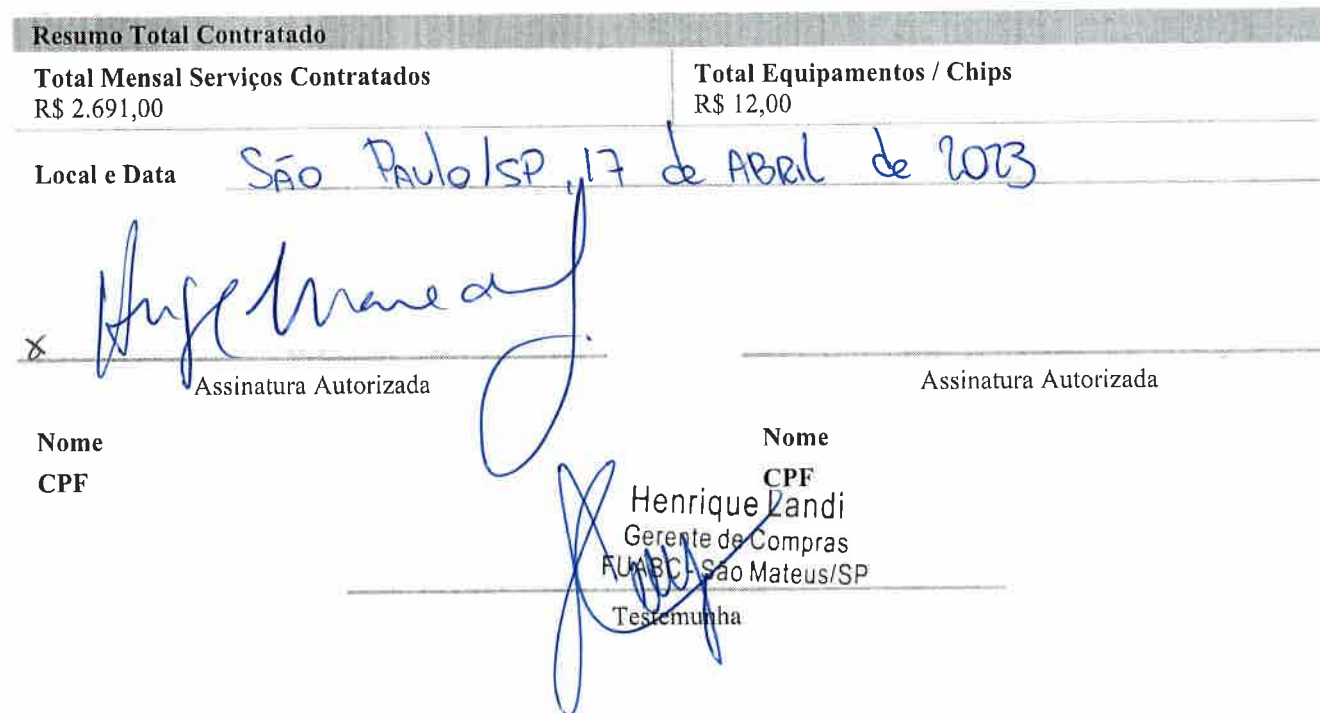 Resumo Total Contratado
Total Mensal Serviços Contratados
R$ 2.691,00
Total Equipamentos / Chips
R$ 12,00
Local e Data São Paulo/SP, 17 de ABRIL de 2023
x
Assinatura Autorizada
Assinatura Autorizada
Nome
CPF
Nome
CPF
Henrique Landi
Gerente de Compras
FUABC - São Mateus/SP
Testemunha